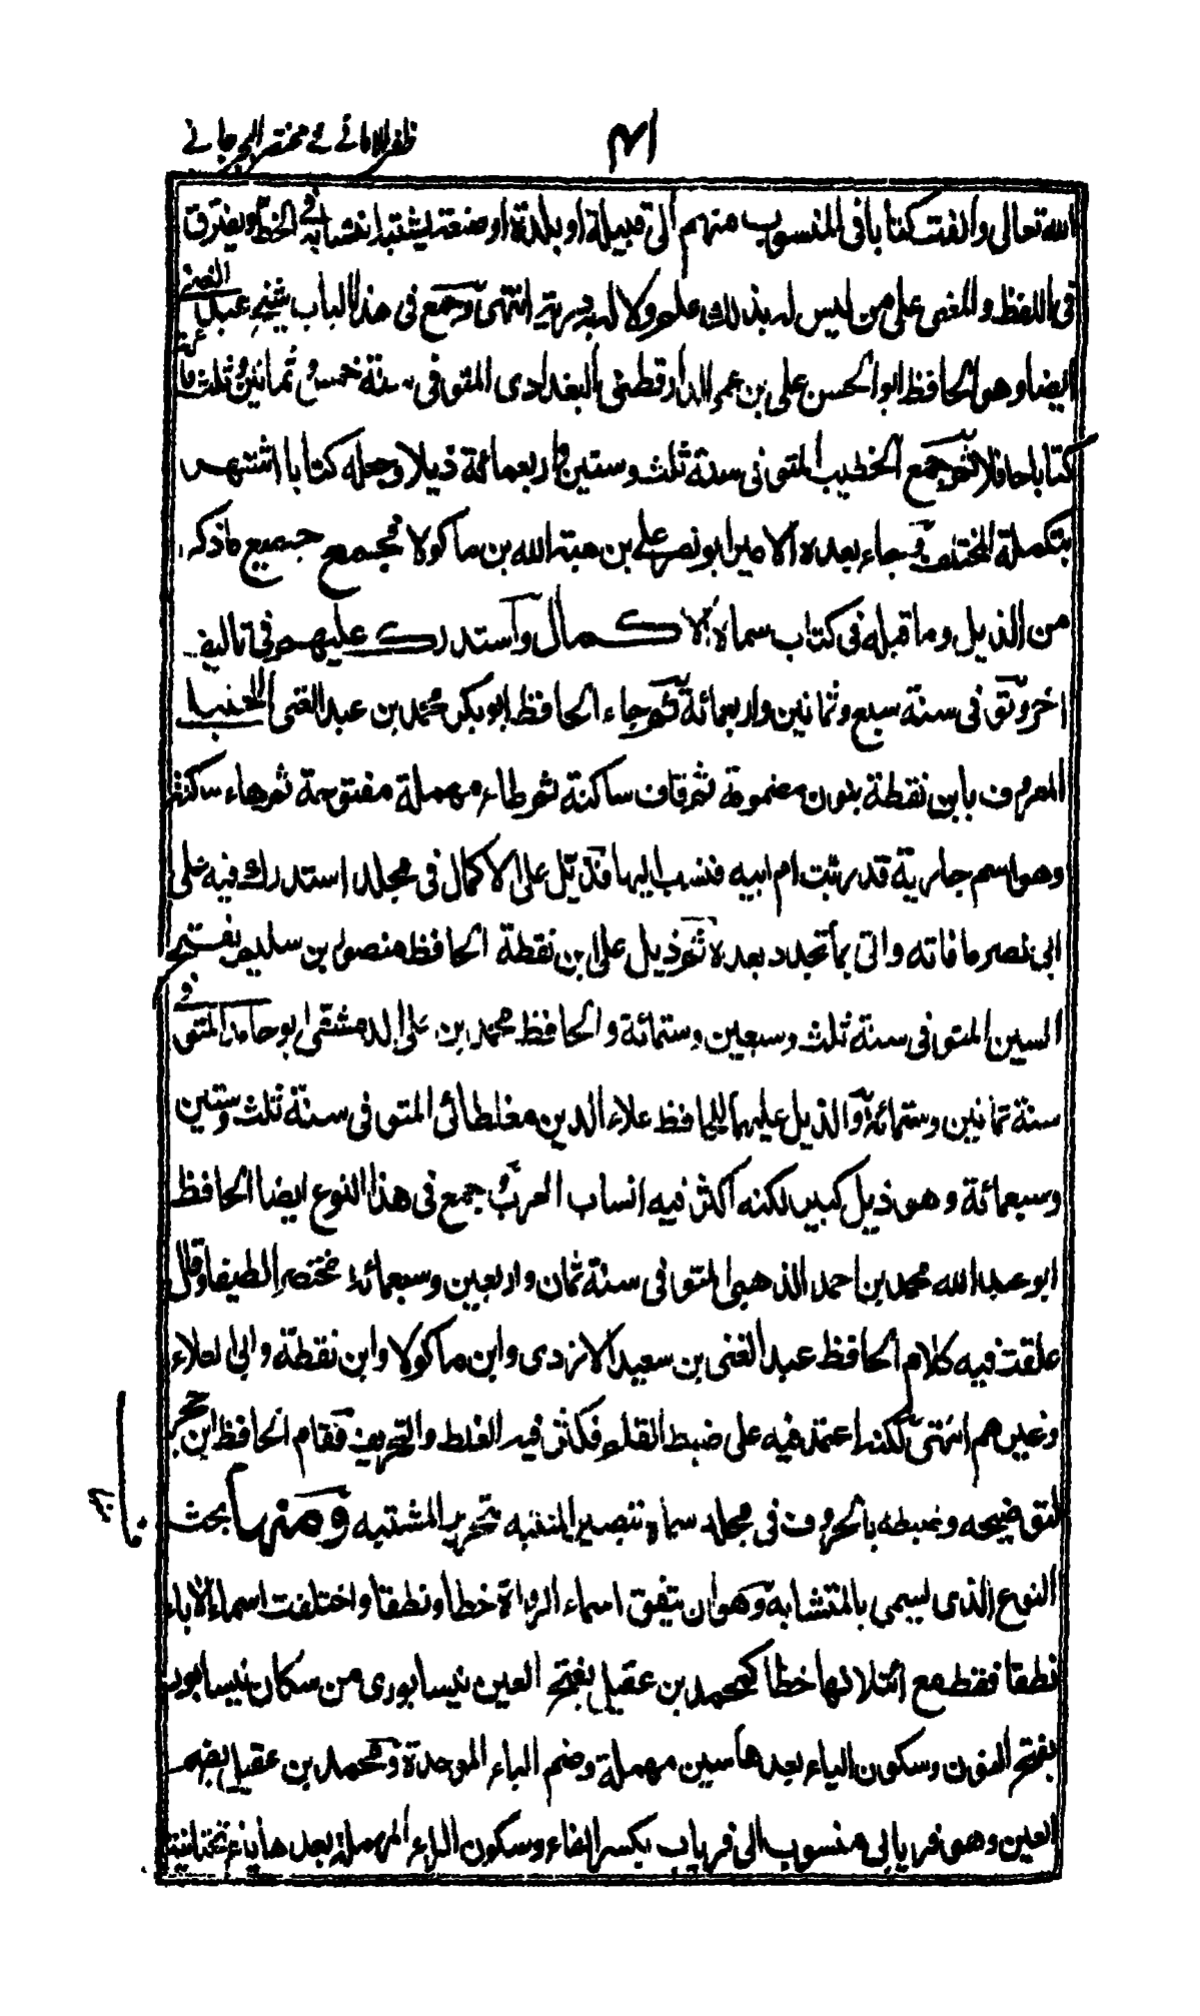 ظفر الامانے فے مختصر الجرجانے
الله تعالى والفت كتابا فى المنسوب منهم الى قبيلة او بلدة او صنعة يشتبه انتسابه فى الخط ويفترق
فى اللفظ والمعنى على من ليس له بذلك علم ولا له به دربة انتهى وجمع فى هذا الباب شيخ عبد الغنى
ايضا وهو الحافظ ابو الحسن على بن عمر الدارقطنى البغدادى المتوفى سنة خمس وثمانين وثلث مائة
كتابا حافلا ثم جمع الخطيب المتوفى سنة ثلث وستين واربعمائة ذيلا وجعله كتابا اشتهر
بتكملة المختلف وجاء بعده الامير ابو نصر على بن هبة الله بن ماكولا فجمع جميع ماذكر
من الذيل وما قبله فى كتاب سماه الاكمال واستدرك عليهم فى تاليف
اخر وتوفى فى سنة سبع وثمانين واربعمائة ثم جاء الحافظ ابو بكر محمد بن عبد الغنى الحنبلى
المعروف بابن نقطة بنون مضمومة ثم قاف ساكنة ثم طاء مهملة مفتوحة ثم هاء ساكنة
وهو اسم جارية قد ربت ام ابيه فنسب اليها فذيل على الاكمال فى مجلد استدرك فيه على
ابى نصر ما فاته واتى بما تجدد بعده ثم ذيل على ابن نقطة الحافظ منصور بن سليم بفتح
السين المتوفى سنة ثلث وسبعين وستمائة والحافظ محمد بن على الدمشقى ابو حامد المتوفى
سنة ثمانين وستمائة والذيل عليهما للحافظ علاء الدين مغلطائى المتوفى سنة ثلث وستين
وسبعمائة وهو ذيل كبير لكنه اكثر فيه انساب العرب وجمع فى هذا النوع ايضا الحافظ
ابو عبد الله محمد بن احمد الذهبى المتوفى سنة ثمان واربعين وسبعمائة مختصرا لطيفا وقال
علقت فيه كلام الحافظ عبد الغنى بن سعيد الازدى وابن ماكولا وابن نقطة وابى العلاء
وغيرهم انتهى لكنه اعتمد فيه على ضبط القلم فكثر فيه الغلط والتحريف فقام الحافظ ابن حجر
لتوضيحه وضبطه بالحروف فى مجلد سماه تبصير المنتبه بتحرير المشتبه ومنها بحث
النوع الذى يسمى بالمتشابه وهو ان يتفق اسماء الرواة خطا ونطقا واختلفت اسماء الاباء
نطقا فقط مع ائتلافها خطا كمحمد بن عقيل بفتح العين نيسابورى من سكان نيسابور
بفتح النون وسكون الياء بعدها سين مهملة وضم الباء الموحدة ومحمد بن عقيل بضم
العين وهو فريابى منسوب الى فرياب بكسر الفاء وسكون الراء المهملة بعدها ياء تحتانية